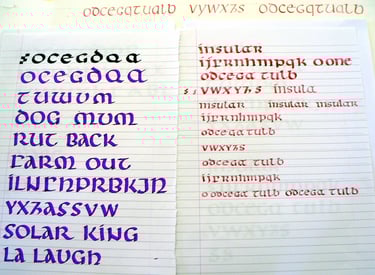 odcegqtualb vywxzs odcegqtualb
ocegdqa
ocegdqa
tuwvm
dog mum
rut back
farm out
ilnrhprbkjn
yxzassvw
solar king
la laugh
insular
ijfrnhmpqk oone
odcega tulb
vwxyzs insula
insular insular insular
ijfrnhmpqk
odcega tulb
vwxyzs
odcega tulb
ijfrnhmpqk
odcega tulb odcega tulb